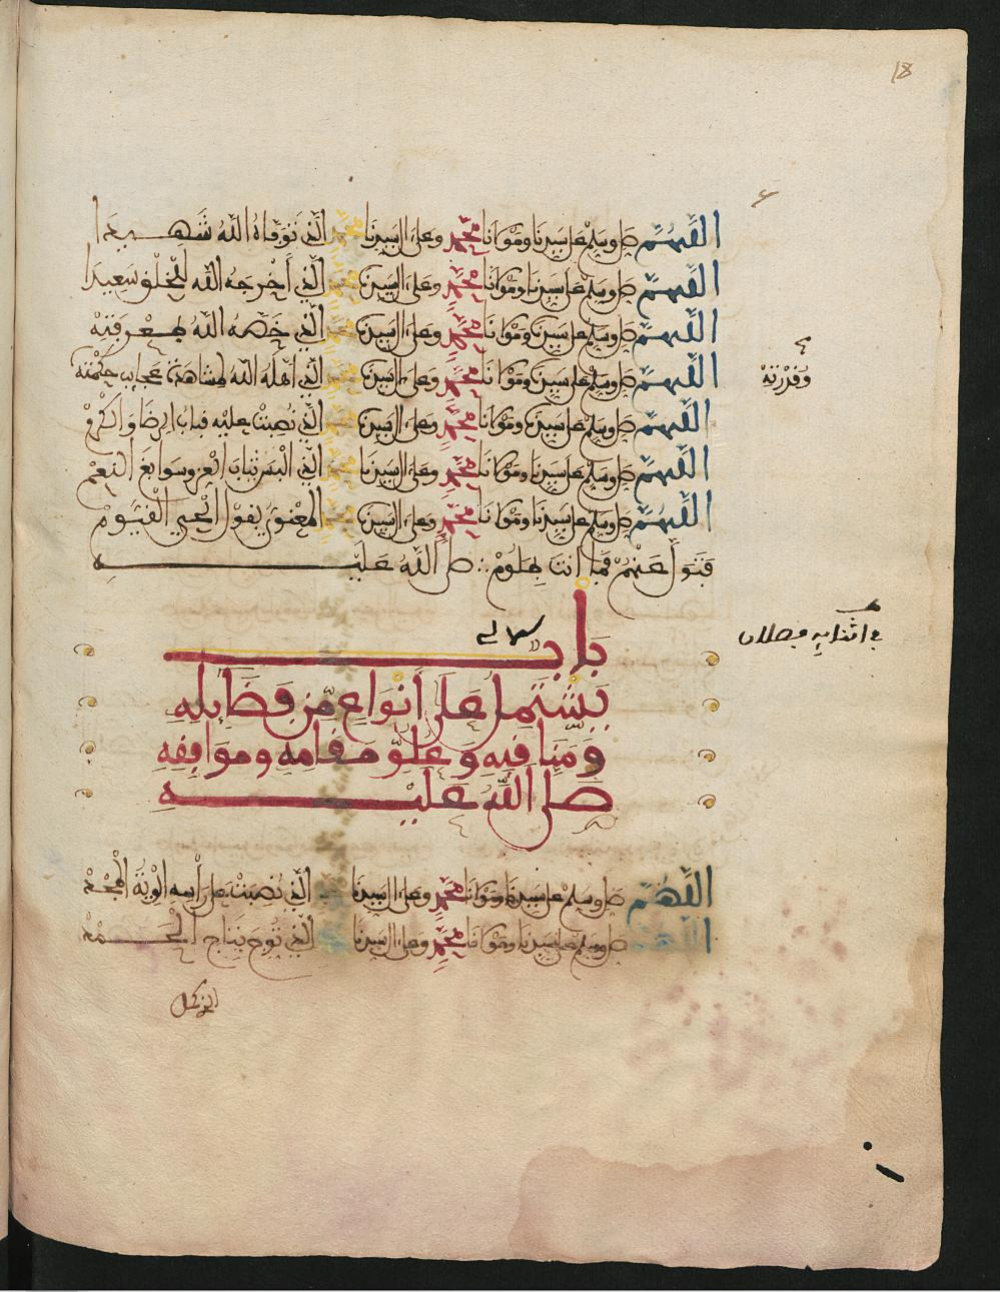 18
اللهم صل وسلم على سيدنا ومولانا محمد وعلى ال سيدنا محمد الذي توفاه الله شهيدا
اللهم صل وسلم على سيدنا ومولانا محمد وعلى ال سيدنا محمد الذي أخرجه الله للخلق سعيدا
اللهم صل وسلم على سيدنا ومولانا محمد وعلى ال سيدنا محمد الذي خصه الله بمعرفته
وقدرته
اللهم صل وسلم على سيدنا ومولانا محمد وعلى ال سيدنا محمد الذي اهله الله لمشاهدة عجايب حكمته
اللهم صل وسلم على سيدنا ومولانا محمد وعلى ال سيدنا محمد الذي نصبت عليه قباب الرضا والكرم
اللهم صل وسلم على سيدنا ومولانا محمد وعلى ال سيدنا محمد الذي البس ثياب العز وسوابغ النعم
اللهم صل وسلم على سيدنا ومولانا محمد وعلى ال سيدنا محمد المعني بقول الحي القيوم
فتول عنهم فما أنت بملوم صلى الله عليه
باب
يشتمل على أنواع من فضايله
ومناقبه وعلو مقامه ومواقفه
صلى الله عليه
اللهم صل وسلم على سيدنا ومولانا محمد وعلى ال سيدنا محمد الذي نصبت على رأسه الوية المجد
اللهم صل وسلم على سيدنا ومولانا محمد وعلى ال سيدنا محمد الذي توج بتاج الحمد